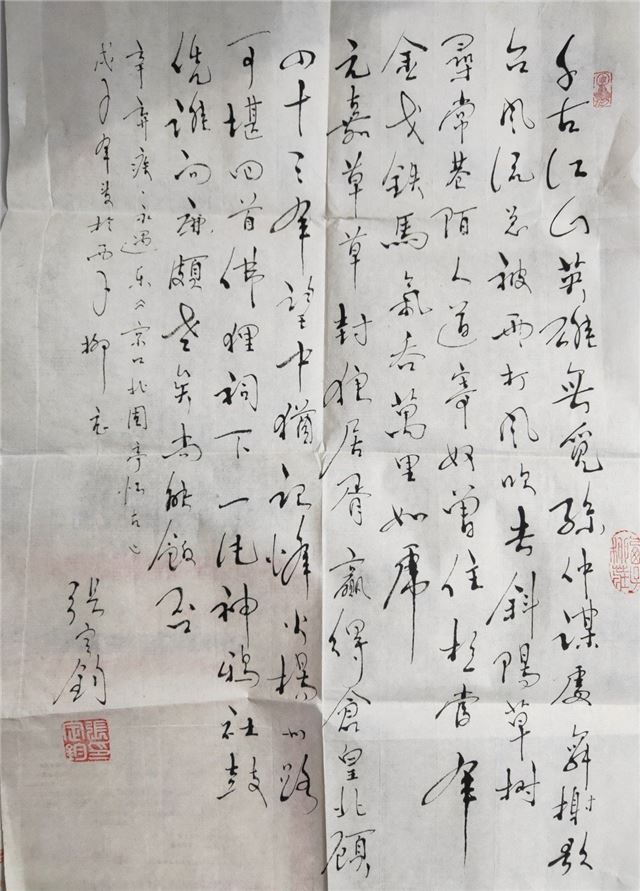 千古江山英雄無覓孫仲謀處舞榭歌
台风流总被雨打风吹去斜陽草树
尋常巷陌人道寄奴曾住想當年
金戈鉄馬氣吞萬里如虎
元嘉草草封狼居胥贏得倉皇北顾
四十三年望中猶记烽火揚州路
可堪回首佛狸祠下一片神鴉社鼓
凭谁问廉颇老矣尚能飯否
辛弃疾永遇乐京口北固亭怀古
戊子年於西子柳
张定鈞